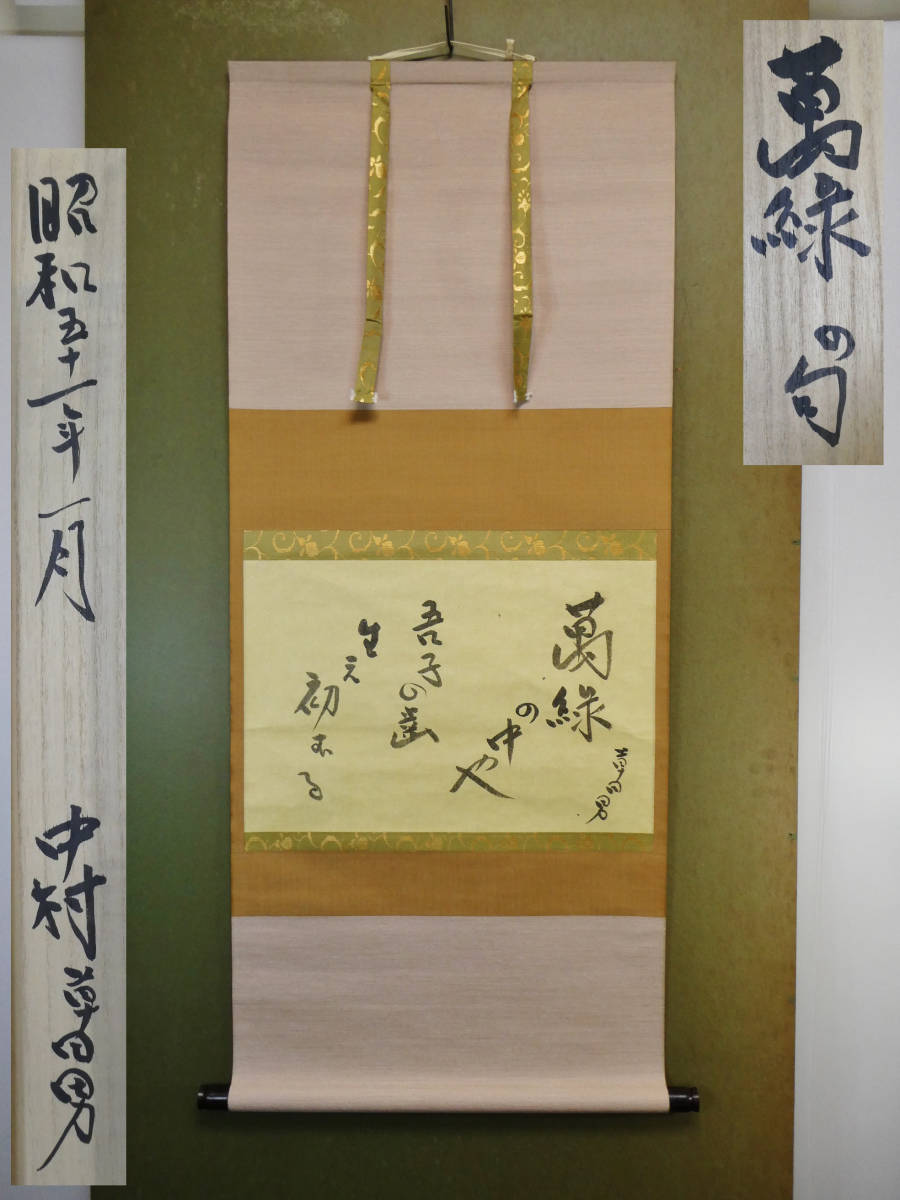 萬緑
の句
萬緑
の中や
吾子の歯
生え
初むる
草田男
昭和五十一年一月
中村草田男